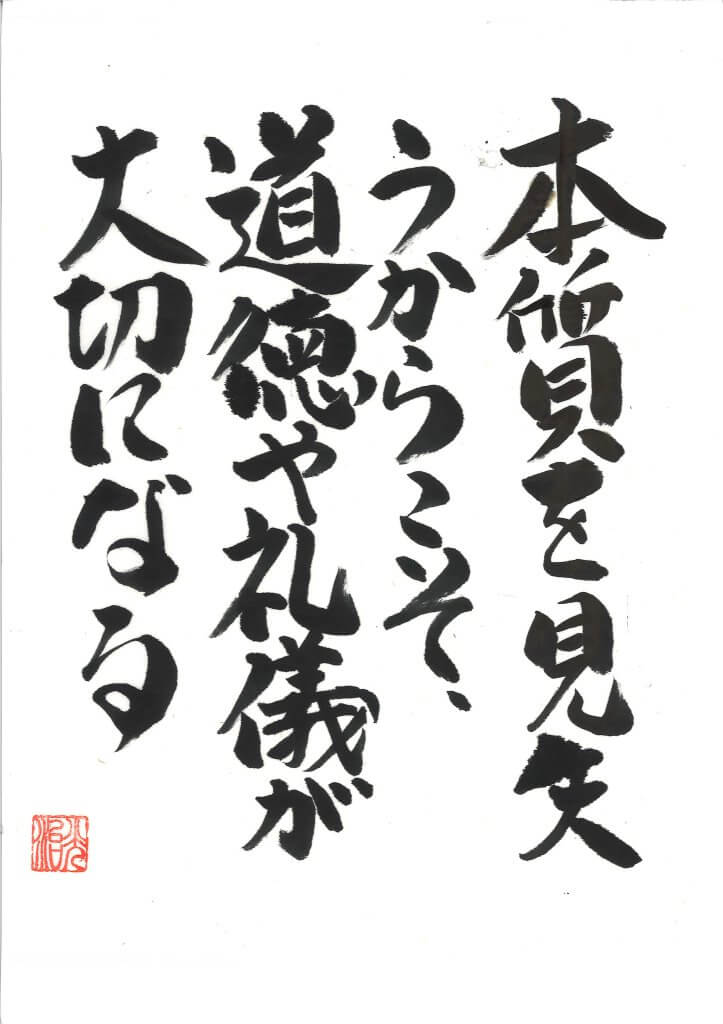 本質を見失
うからこそ、
道徳や礼儀が
大切になる